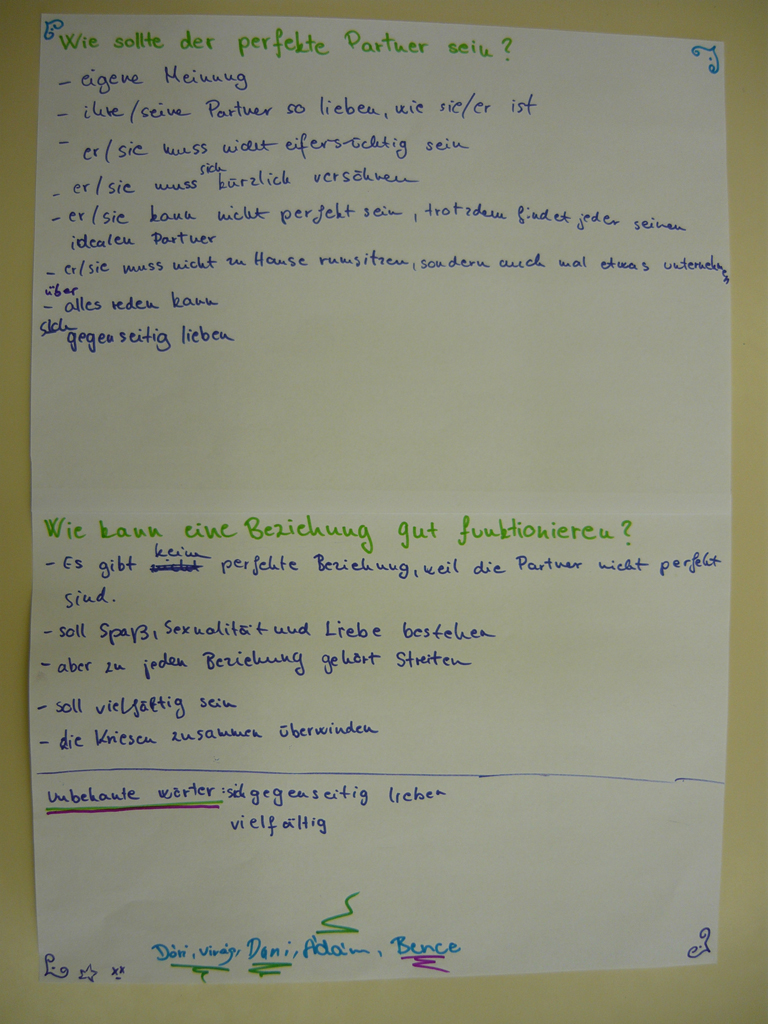 Wie sollte der perfekte Partner sein?
- eigene Meinung
- ihre/seine Partner so lieben, wie sie/er ist
- er/sie muss nicht eifersüchtig sein
- er/sie muss sich kürzlich versöhnen
- er/sie kann nicht perfekt sein, trotzdem findet jeder seinen
idealen Partner
- er/sie muss nicht zu Hause rumsitzen, sondern auch mal etwas unternehmen
über
- alles reden kann
sich gegenseitig lieben
Wie kann eine Beziehung gut funktionieren?
- Es gibt kein perfekte Beziehung, weil die Partner nicht perfekt
sind.
- soll Spaß, Sexualität und Liebe bestehen
- aber zu jeden Beziehung gehört Streiten
- soll vielfältig sein
- die Kriesen zusammen überwinden
Unbekante wörter: sich gegenseitig lieben
vielfältig
Dóri, Virág, Dani, Ádám, Bence